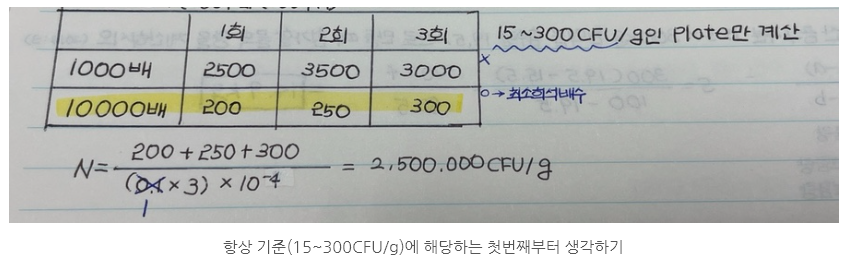 1회 2회 3회
15~300CFU/g인 Plate만 계산
1000배 2500 3500 3000 x
10000배 200 250 300 o→최소희석배수
N= 200+250+300 / (0.1×3)×10⁻⁴ = 2,500,000CFU/g
1
항상 기준(15~300CFU/g)에 해당하는 첫번째부터 생각하기